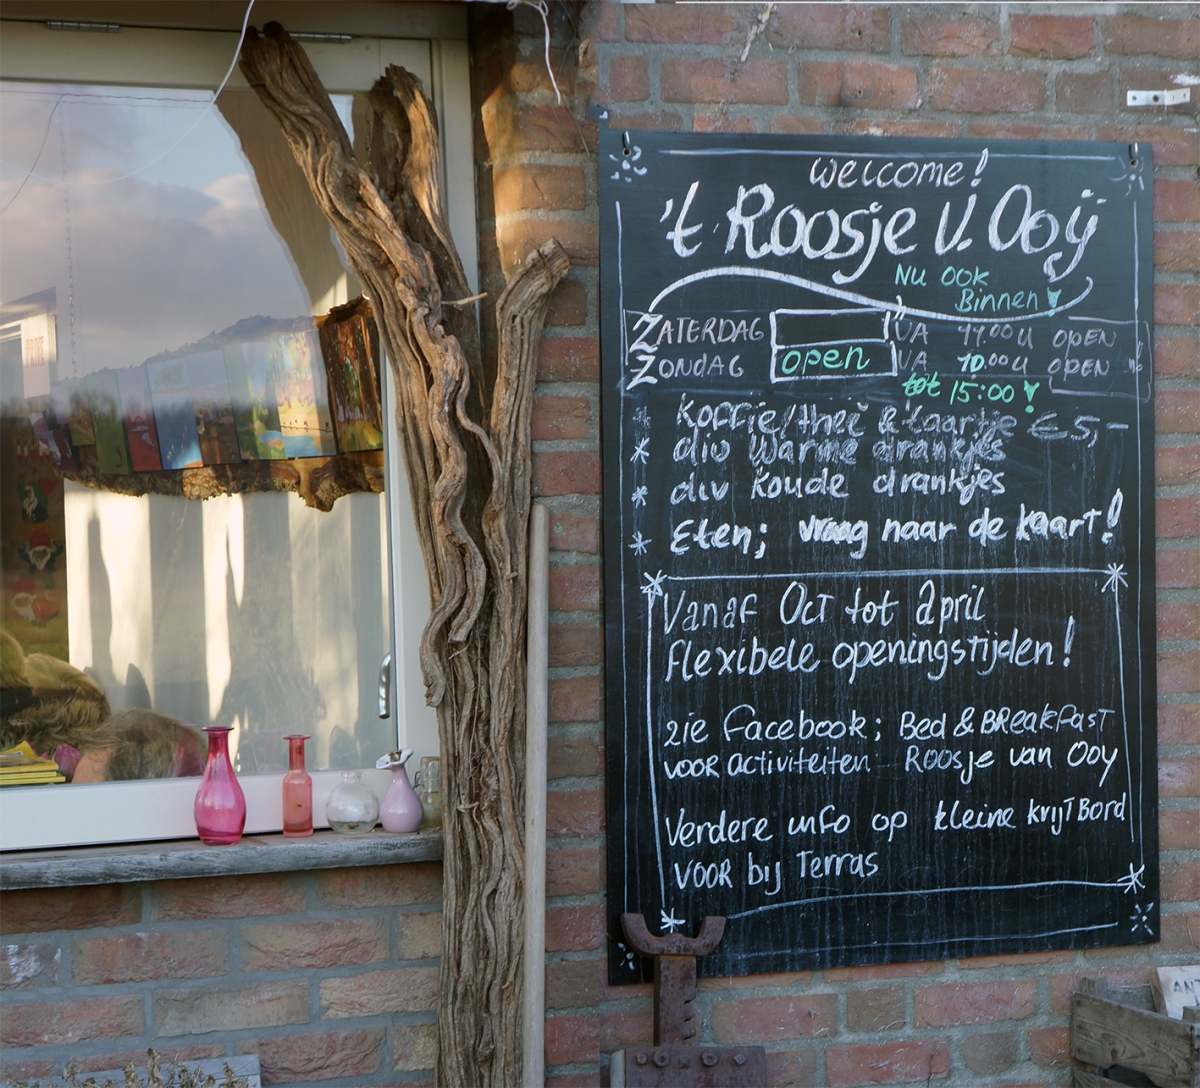 welcome!
't Roosje v. Ooij
Nu ook
Binnen
ZATERDAG VA 11.00 U OPEN
ZONDAG open VA 10.00 U OPEN
tot 15:00!
koffie/thee & taartje € 5,-
* div warme drankjes
* div koude drankjes
* Eten; vraag naar de kaart!
Vanaf Oct tot april
flexibele openingstijden!
zie facebook; Bed & BReakfasT
voor activiteiten Roosje van Ooy
Verdere info op kleine krijTBord
VOOR bij Terras